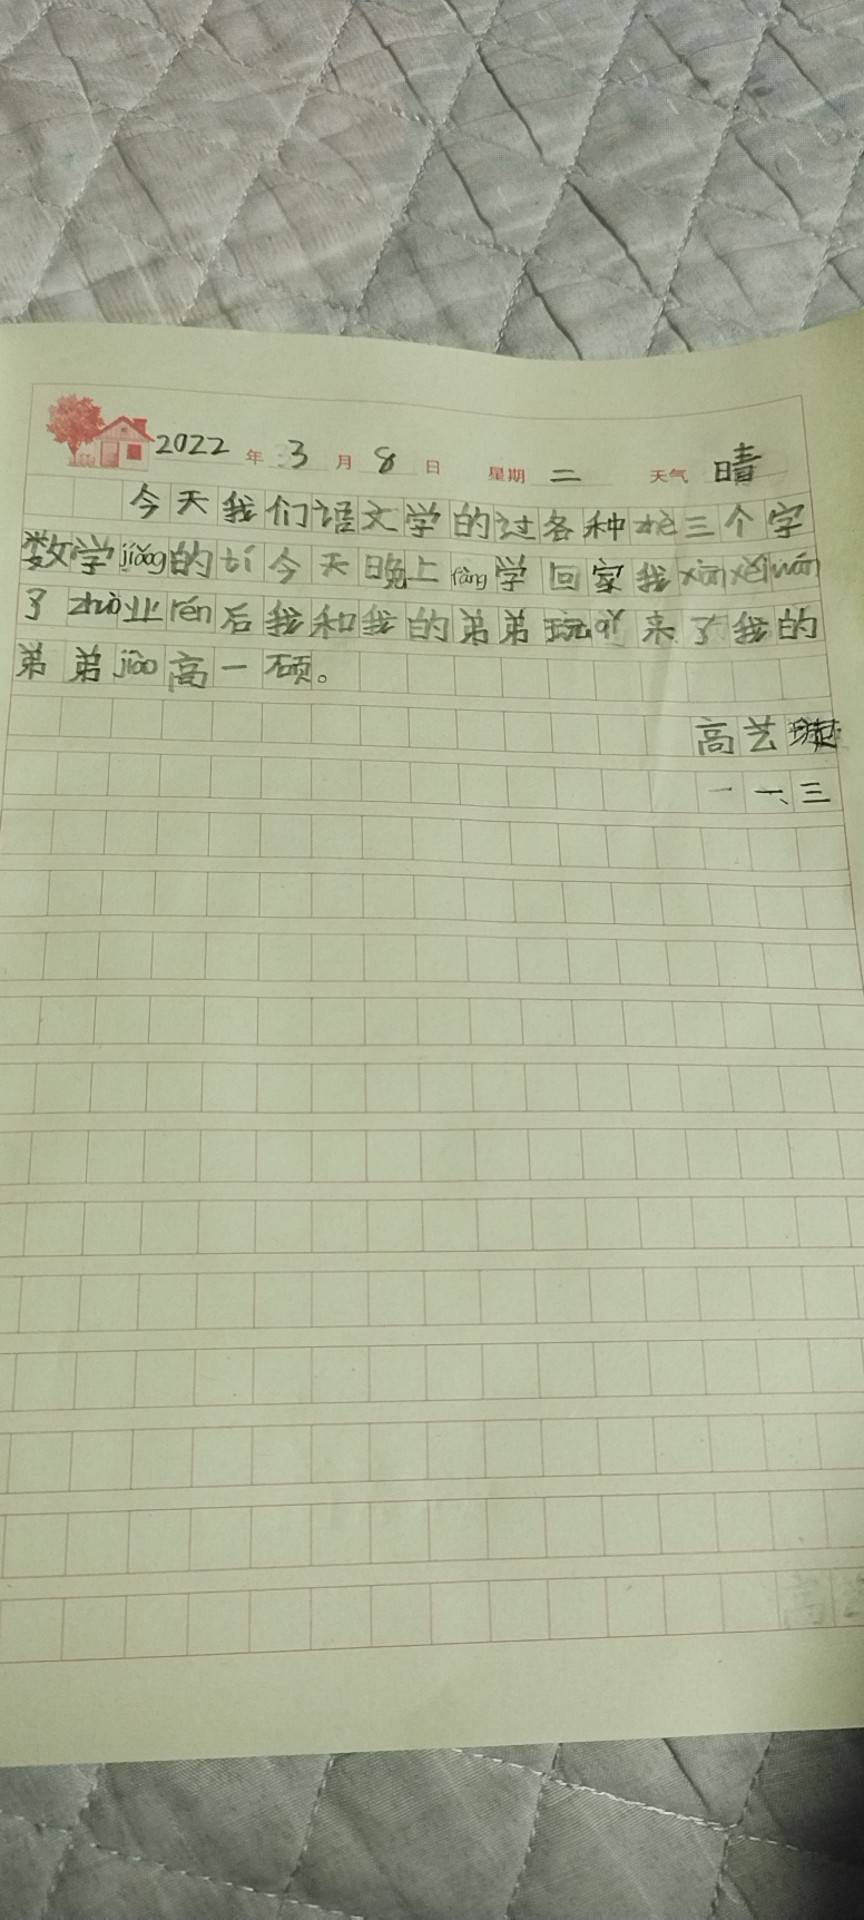 2022 年 3 月 8 日 星期 二 天气 晴
今天我们语文学的过各种 三个字
数学jiǎng的tí今天晚上fàng学回家我xiān xiě wán
了zhuò业rén后我和我的弟弟玩qǐ来了我的
弟弟jiào高一硕。
高艺璇
一 一、三